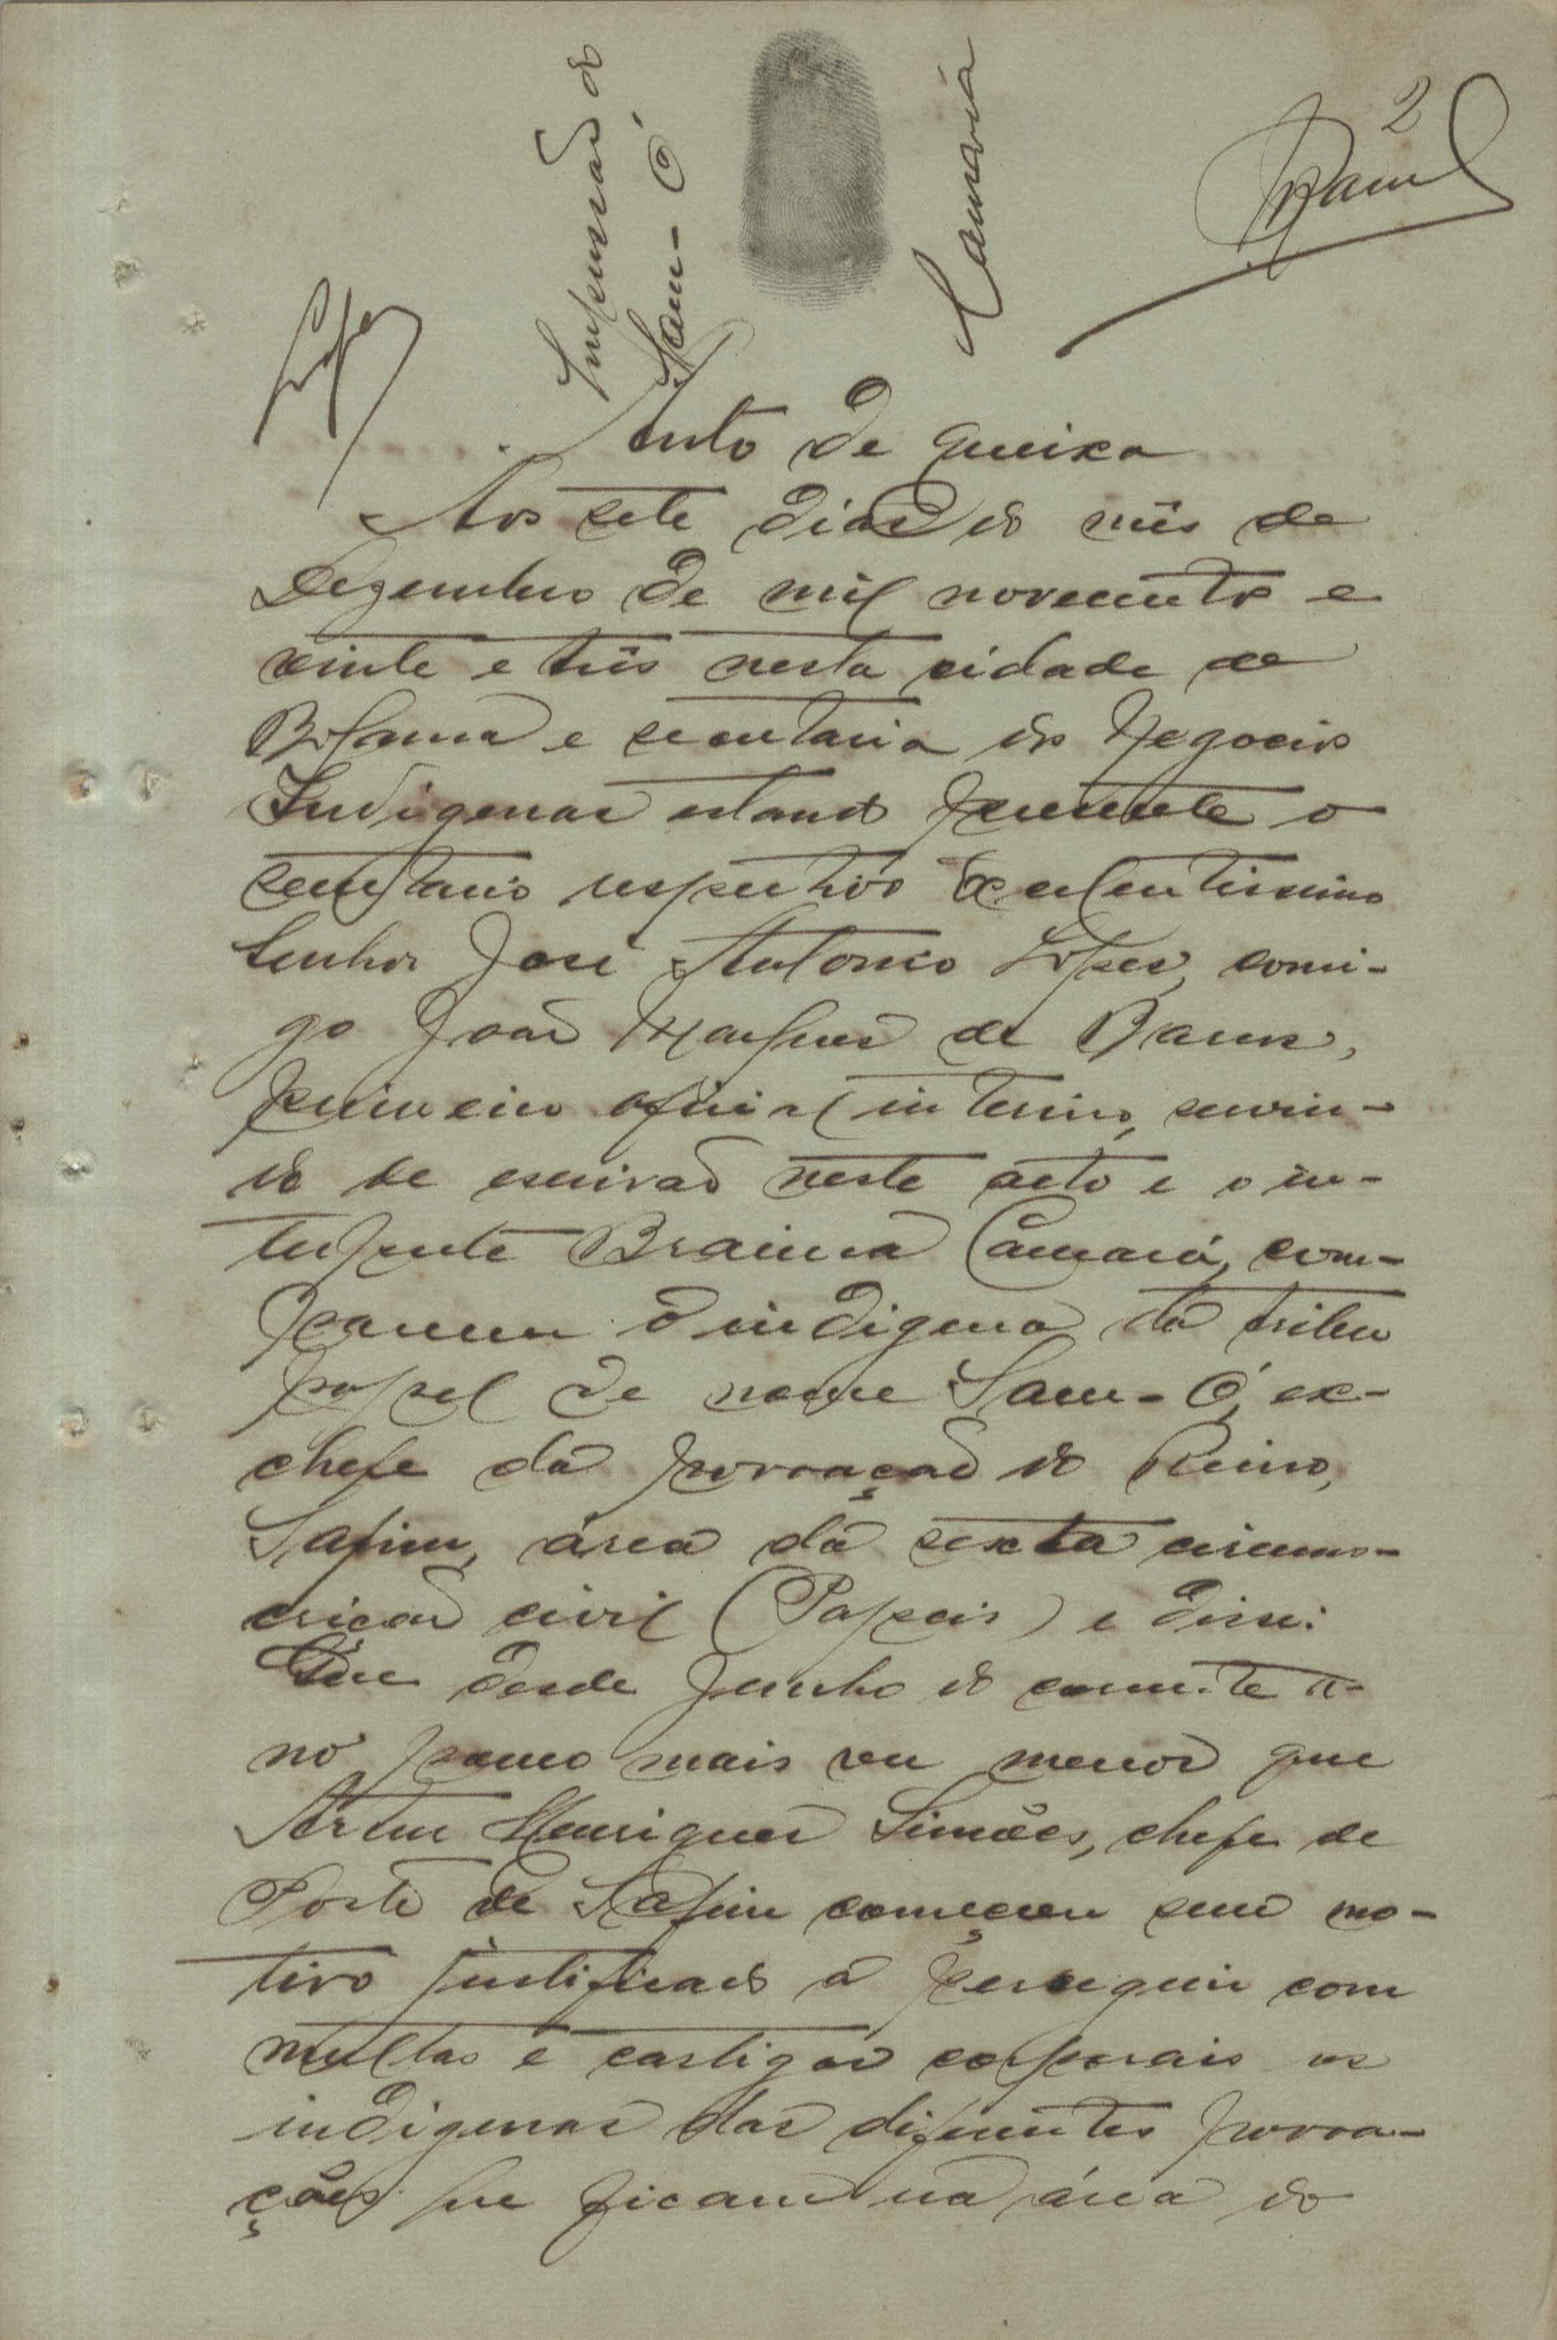 2
Barros
Lopes
Impressão do
Sam-Ó
Camará
Auto de queixa
Aos sete dias do mês de
Dezembro de mil novecentos e
vinte e três nesta cidade de
Bolama e secretaria dos Negocios
Indigenas estando presente o
secretario respectivo Excelentissimo
Senhor José Antonio Lopes, comi-
go João Marques de Barros,
primeiro oficial interino, servin-
do de escrivão neste acto e o in-
terprete Braima Câmará, com-
pareceu o indigena da tribu
papel de nome Sam-Ó, ex-
chefe da povoação do Reino,
Safim, área da sexta circuns-
crição civil (Papeis) e disse:
Que desde Junho do corrente a-
no pouco mais ou menos que
Artur Henriques Simões, chefe de
Posto de Safim começou sem mo-
tivo justificado a perseguir com
multas e castigos corporais os
indigenas das diferentes povoa-
ções que ficam na área do